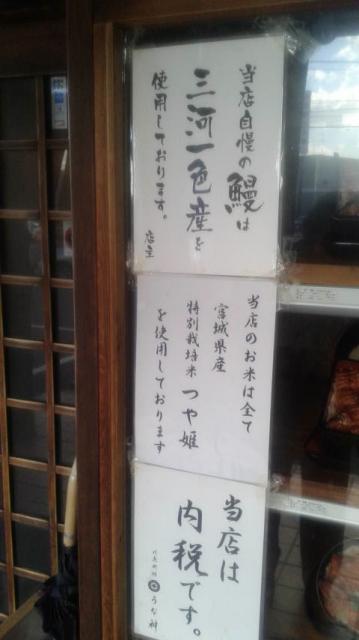 当店自慢の鰻は
三河一色産を
使用しております。
店主
当店のお米は全て
宮城県産
特別栽培米 つや姫
を使用しております
当店は
内税です。
うな神